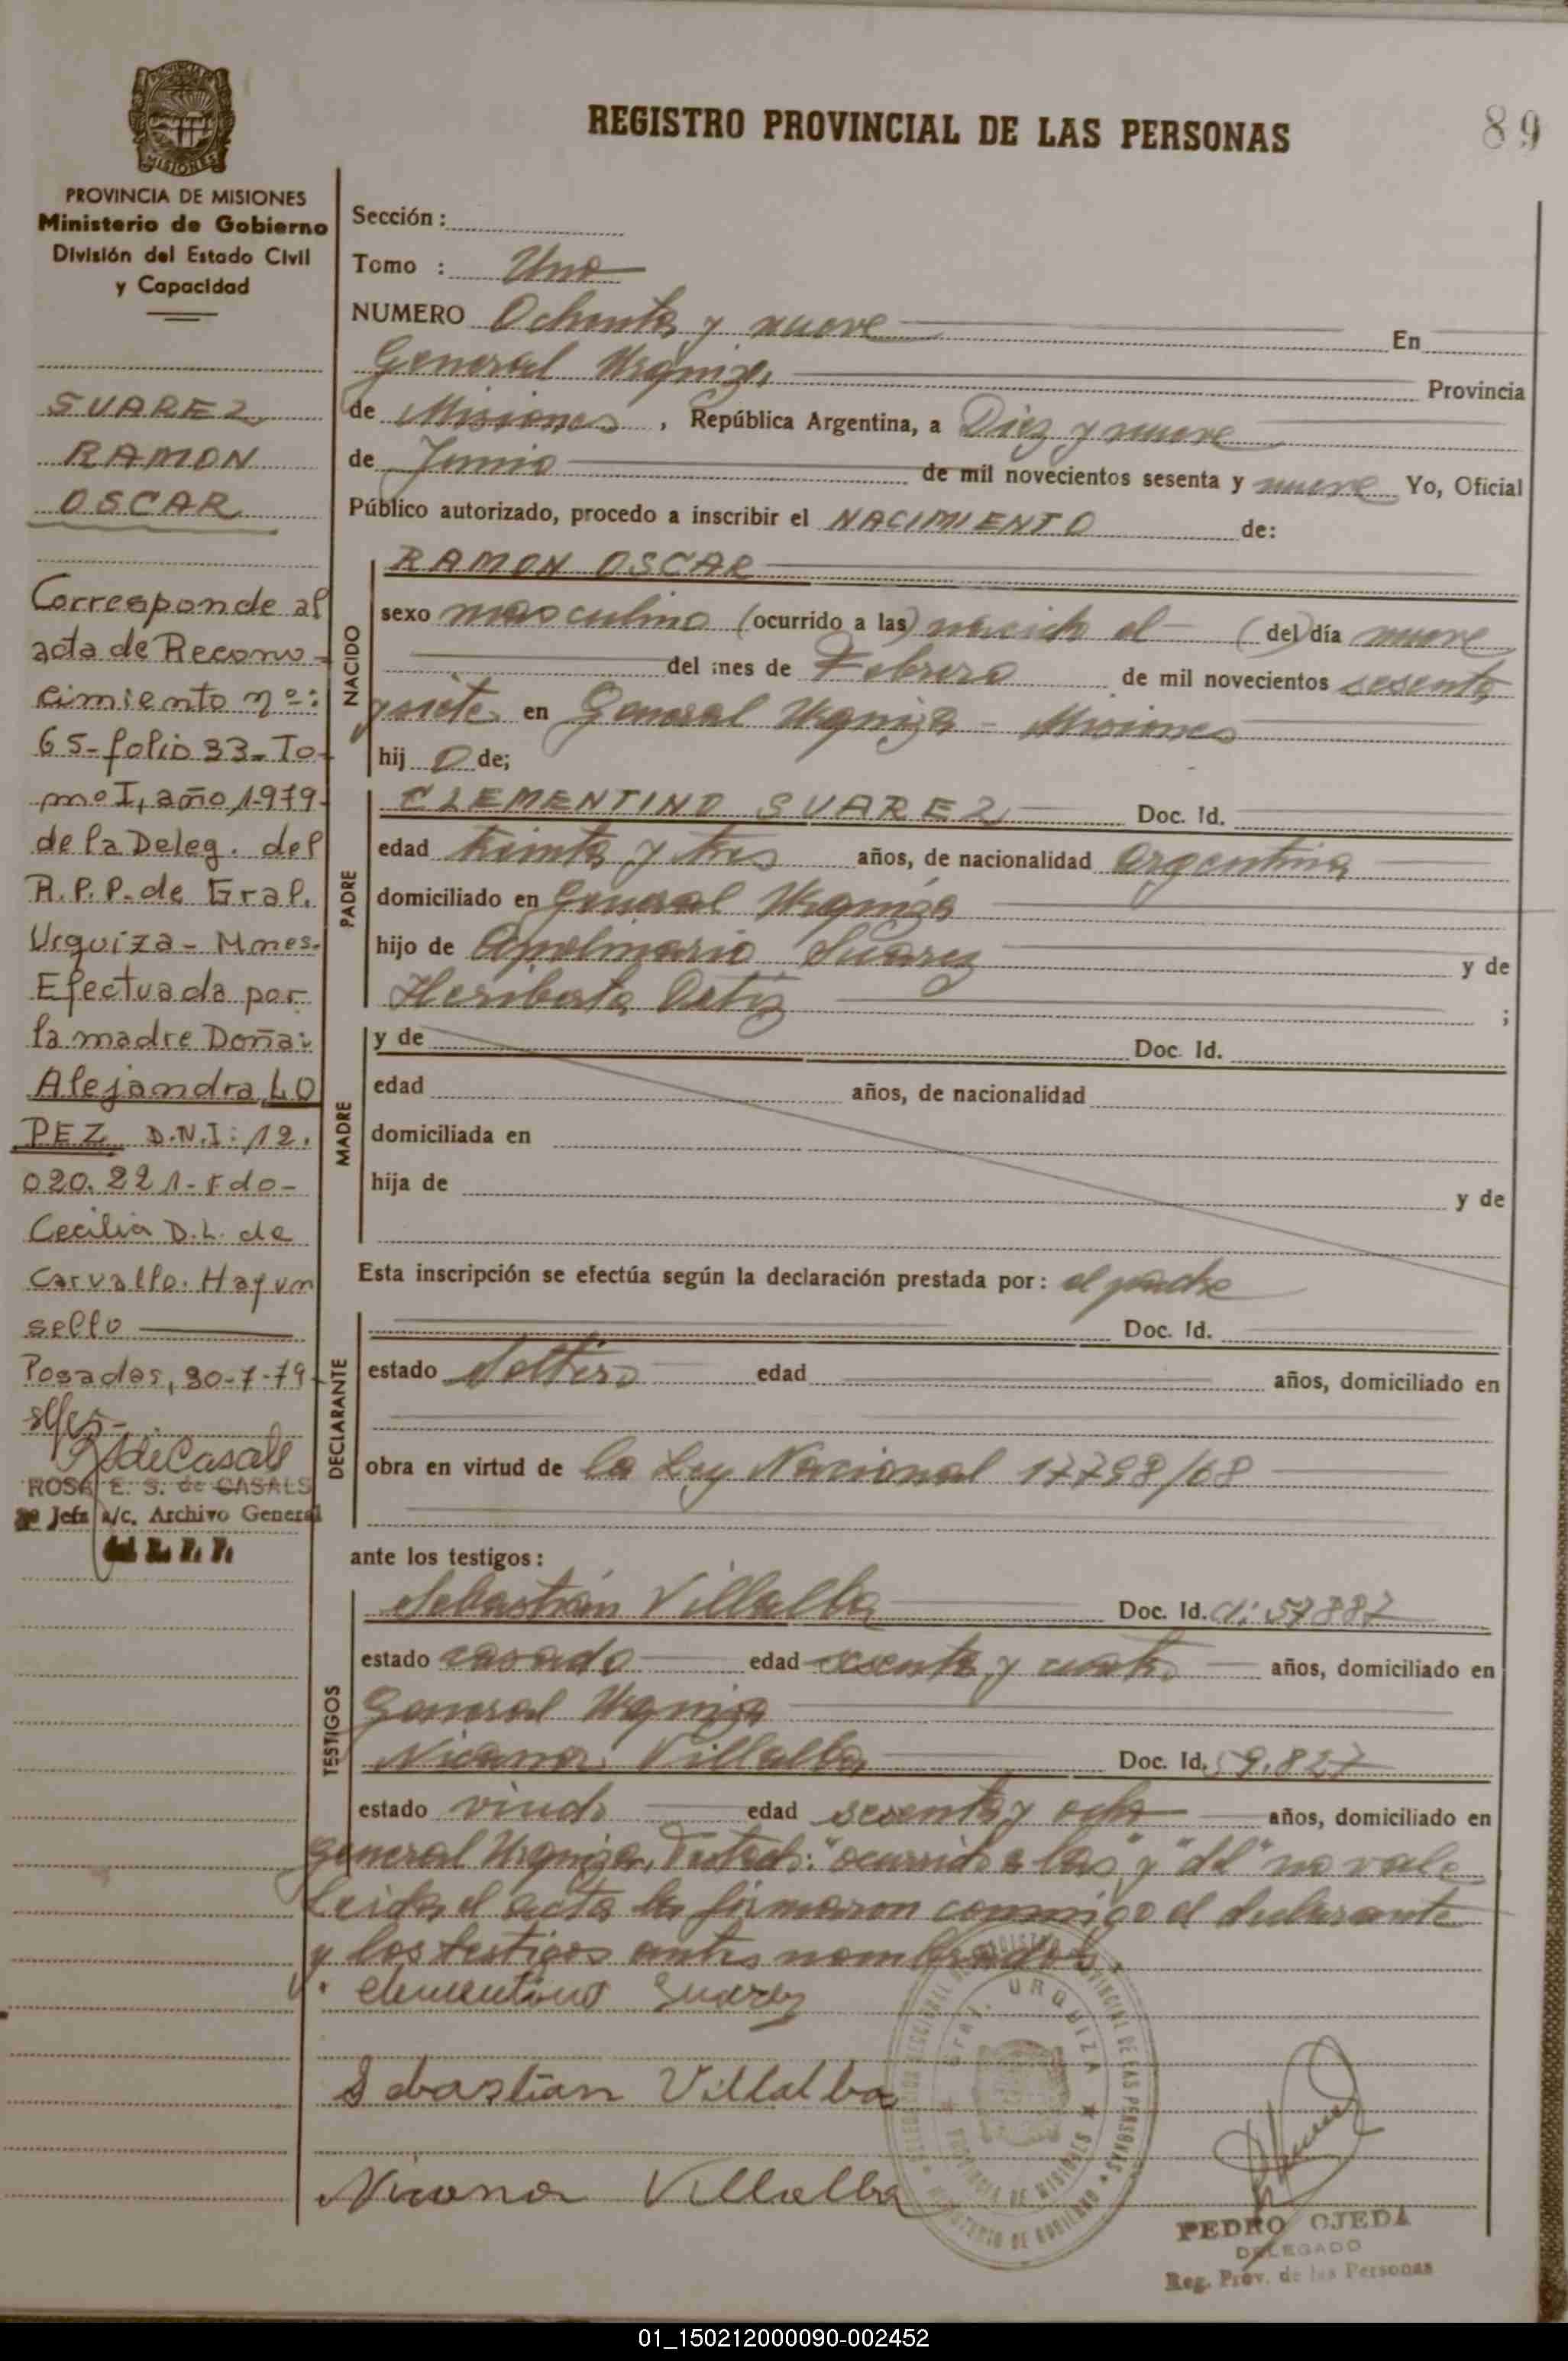 REGISTRO PROVINCIAL DE LAS PERSONAS
89
MISIONES
PROVINCIA DE MISIONES
Ministerio de Gobierno
División del Estado Civil
y Capacidad
SUAREZ
RAMON
OSCAR
Corresponde al
acta de Recono-
cimiento nº:
65-folio 33-To-
mo I, año 1979-
de la Deleg. del
R.P.P. de Gral.
Urquiza-Mnes.
Efectuada por
la madre Doña:
Alejandra LO
PEZ D.N.I: 12.
020.221-Fdo-
Cecilia D.L. de
Carvallo. Hay un
sello
Posadas, 30-7-79
ROSA E. S. de CASALS
Jefa a/c. Archivo General
Sección:
Tomo : Uno
NUMERO Ochenta y nueve En
General Urquiza, Provincia
de Misiones, República Argentina, a Diez y nueve
de Junio de mil novecientos sesenta y nueve Yo, Oficial
Público autorizado, procedo a inscribir el NACIMIENTO de:
NACIDO
RAMON OSCAR
sexo masculino (ocurrido a las) nacido el (del) día nueve
del mes de Febrero de mil novecientos sesenta
y siete en General Urquiza - Misiones
hijo de;
PADRE
CLEMENTINO SUAREZ Doc. Id.
edad treinta y tres años, de nacionalidad argentina
domiciliado en General Urquiza
hijo de Apolinario Suarez y de
Heriberta Ortiz ;
MADRE
y de Doc. Id.
edad años, de nacionalidad
domiciliada en
hija de y de
Esta inscripción se efectúa según la declaración prestada por: el padre
DECLARANTE
Doc. Id.
estado Soltero edad años, domiciliado en
obra en virtud de la Ley Nacional 17798/68
ante los testigos:
TESTIGOS
Sebastián Villalba Doc. Id. 57887
estado casado edad sesenta y cuatro años, domiciliado en
General Urquiza
Nicanor Villalba Doc. Id. 59.827
estado viudo edad sesenta y ocho años, domiciliado en
General Urquiza, Testado: "ocurrido a las" y "del" no vale
Leida el acta la firmaron conmigo el declarante
y los testigos antes nombrados.
Clementino Suarez
Sebastian Villalba
Nicanor Villalba
Gral. URQUIZA
PROVINCIA DE MISIONES
MINISTERIO DE GOBIERNO
PEDRO OJEDA
DELEGADO
Reg. Prov. de las Personas
01_150212000090-002452